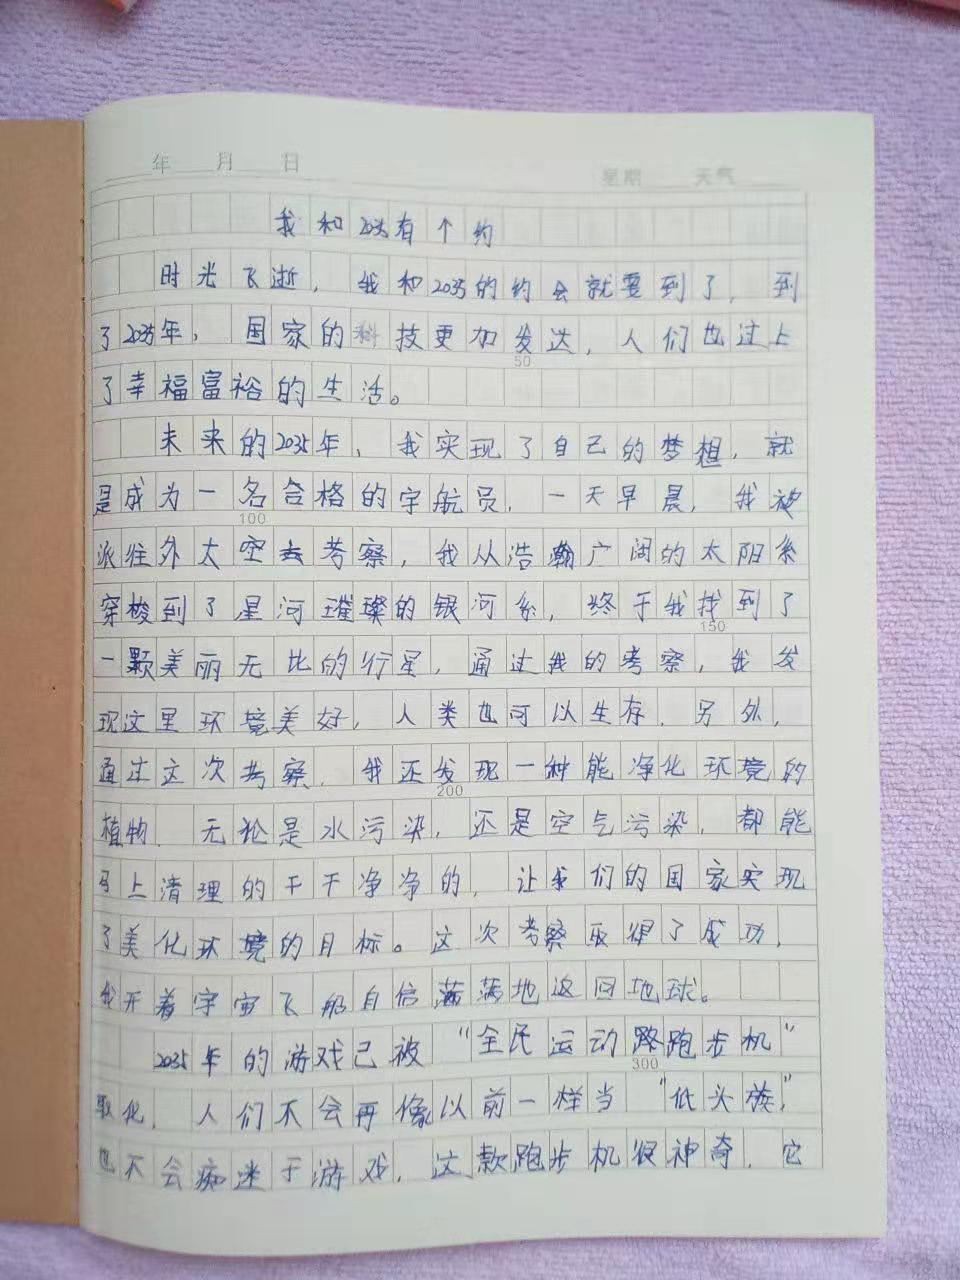 年 月 日
星期 天气
我和2035有个约
时光飞逝，我和2035的约会就要到了，到
了2035年，国家的科技更加发达，人们也过上
50
了幸福富裕的生活。
未来的2035年，我实现了自己的梦想，就
是成为一名合格的宇航员，一天早晨，我被
100
派往外太空去考察，我从浩瀚广阔的太阳系
穿梭到了星河璀璨的银河系，终于我找到了
150
一颗美丽无比的行星，通过我的考察，我发
现这里环境美好，人类也可以生存，另外，
通过这次考察，我还发现一种能净化环境的
200
植物，无论是水污染，还是空气污染，都能
马上清理的干干净净的，让我们的国家实现
了美化环境的目标。这次考察取得了成功，
我开着宇宙飞船自信满满地返回地球。
2035年的游戏已被“全民运动路跑步机”
300
化，人们不会再像以前一样当“低头族”，
也不会痴迷于游戏，这款跑步机很神奇，它